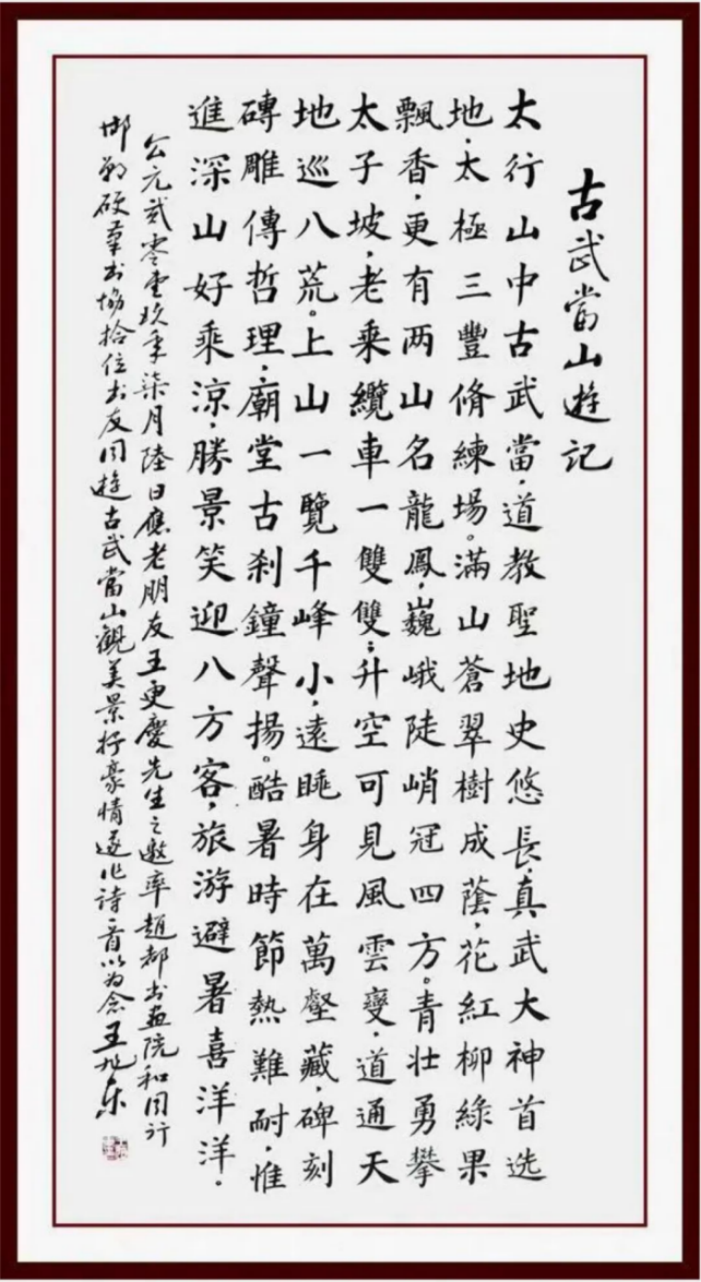 古武當山遊記
太行山中古武當，道教聖地史悠長，真武大神首选
地，太極三豐脩練場。滿山蒼翠樹成蔭，花紅柳綠果
飄香，更有两山名龍鳳，巍峨陡峭冠四方。青壮勇攀
太子坡，老乘纜車一雙雙；升空可見風雲變，道通天
地巡八荒。上山一覽千峰小，遠眺身在萬壑藏，碑刻
磚雕傳哲理，廟堂古刹鐘聲揚。酷暑時節熱難耐，惟
進深山好乘涼，勝景笑迎八方客，旅游避暑喜洋洋。
公元贰零壹玖年柒月陸日應老朋友王更慶先生之邀率趙都书画院和同行
邯鄲硬筆书協拾位书友同遊古武當山觀美景抒豪情遂作诗一首以为念王旭东